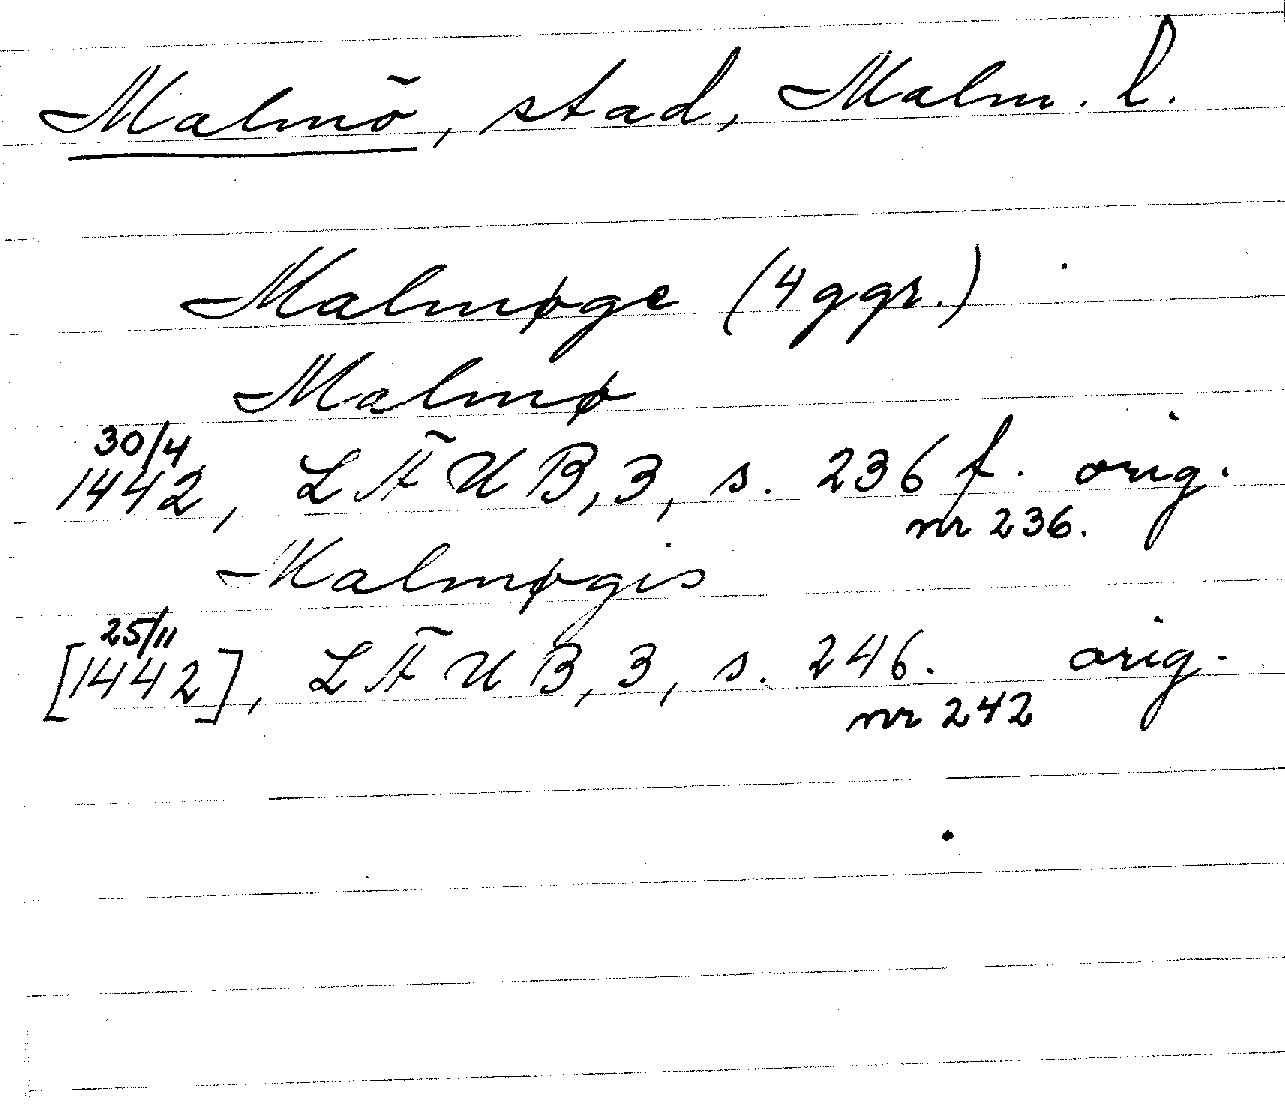 Malmö, stad, Malm. l.
Malmøge (4 ggr.)
Malmø
30/4
1442, LÄUB, 3, s. 236 f. orig.
nr 236.
Malmøgis
25/11
[1442], LÄUB, 3, s. 246. orig.
nr 242